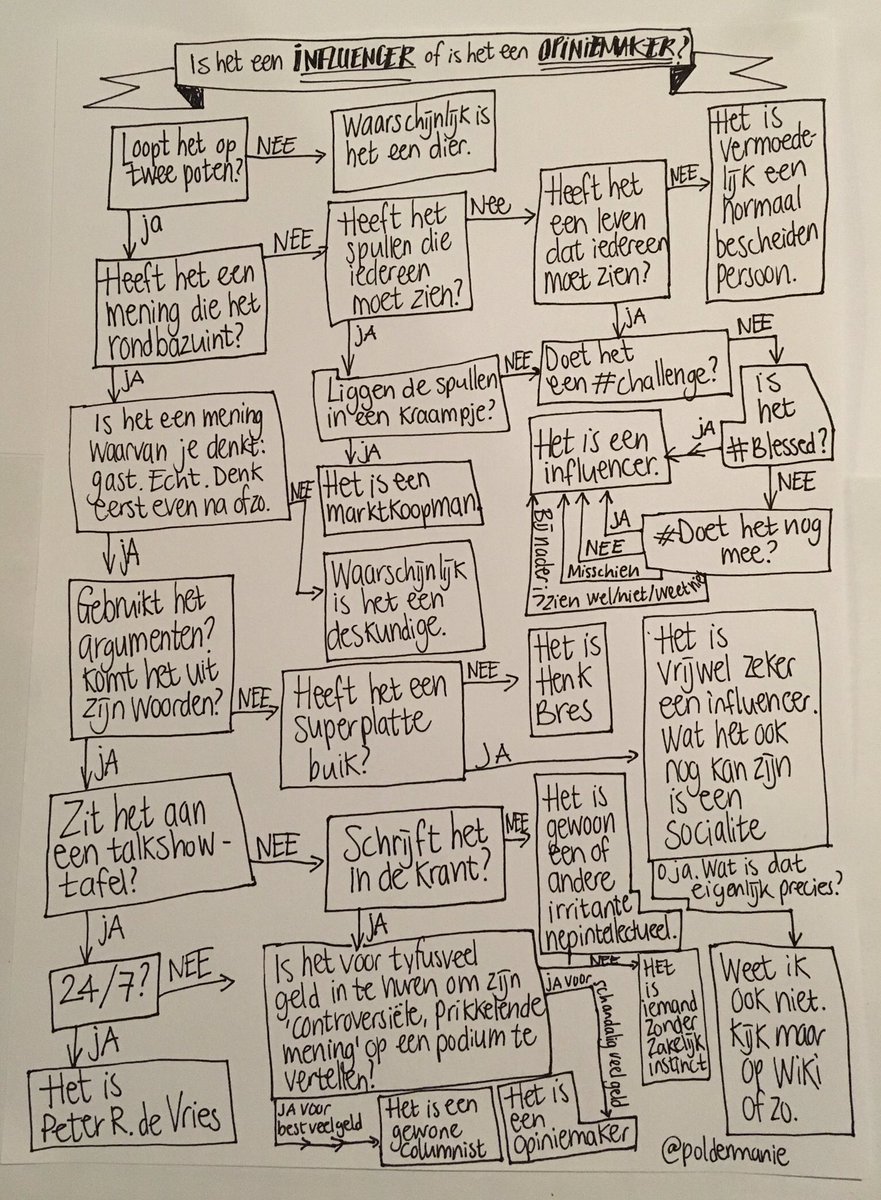 Is het een INFLUENCER of is het een OPINIEMAKER?
Loopt het op
twee poten?
NEE
Waarschijnlijk is
het een dier.
ja
Heeft het een
mening die het
rondbazuint?
NEE
Heeft het
spullen die
iedereen
moet zien?
Nee
Heeft het
een leven
dat iedereen
moet zien?
NEE
Het is
vermoede-
lijk een
normaal
bescheiden
persoon.
jA
Is het een mening
waarvan je denkt:
gast. Echt. Denk
eerst even na ofzo.
NEE
jA
Liggen de spullen
in een kraampje?
NEE
jA
Doet het
een #challenge?
NEE
is
het
#Blessed?
jA
Het is een
influencer.
NEE
#Doet het nog
mee?
JA
NEE
Misschien
Bij nader in
zien wel/niet/weet niet
jA
Het is een
marktkoopman.
Waarschijnlijk
is het een
deskundige.
jA
Gebruikt het
argumenten?
Komt het uit
zijn woorden?
NEE
Heeft het een
superplatte
buik?
NEE
Het is
Henk
Bres
JA
Het is
vrijwel zeker
een influencer.
Wat het ook
nog kan zijn
is een
socialite
o ja. Wat is dat
eigenlijk precies?
Weet ik
ook niet.
Kijk maar
op Wiki
of zo.
jA
Zit het aan
een talkshow-
tafel?
NEE
Schrijft het
in de krant?
NEE
Het is
gewoon
een of
andere
irritante
nepintellectueel.
jA
24/7?
NEE
jA
Het is
Peter R. de Vries
jA
Is het voor tyfusveel
geld in te huren om zijn
'controversiële, prikkelende
mening' op een podium te
vertellen?
NEE
HET
is
iemand
zonder
zakelijk
instinct
jA voor
schandalig veel geld
Het is
een
Opiniemaker
JA voor
best veel geld
Het is een
gewone
columnist
@poldermanie